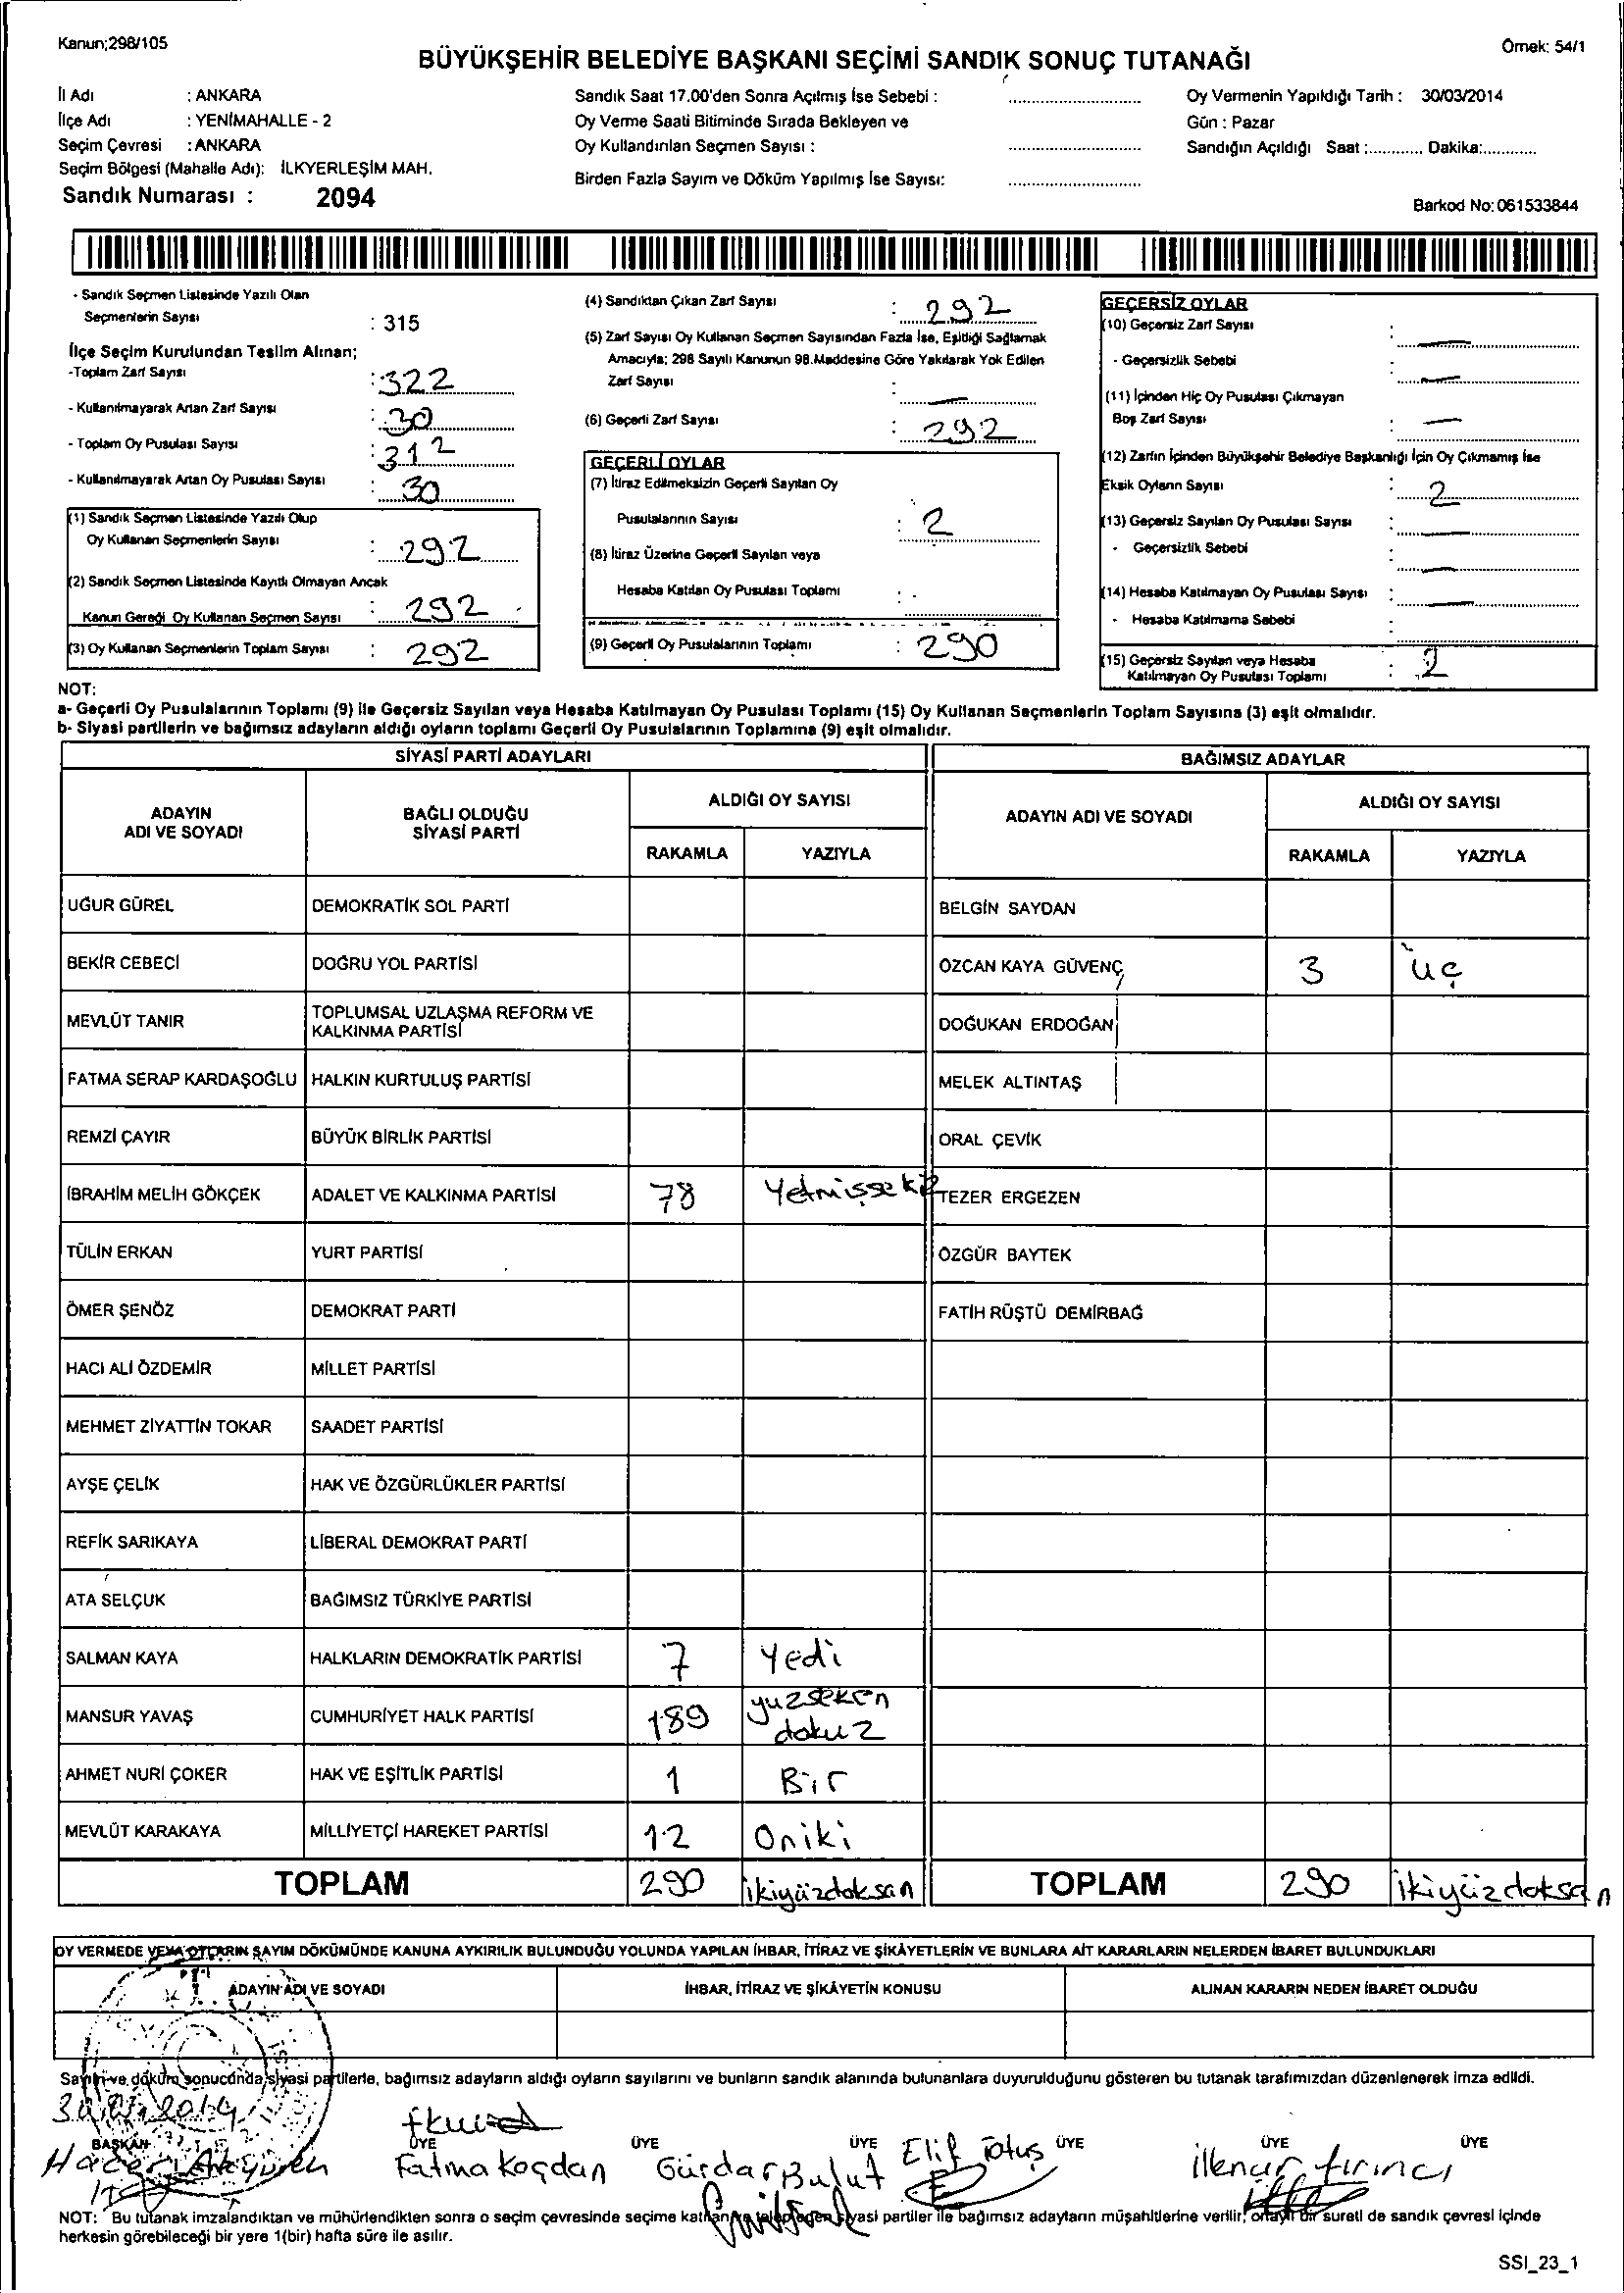 Kanun;298/105
Örnek: 54/1
BÜYÜKŞEHİR BELEDİYE BAŞKANI SEÇİMİ SANDIK SONUÇ TUTANAĞI
İl Adı : ANKARA
İlçe Adı : YENİMAHALLE - 2
Seçim Çevresi : ANKARA
Seçim Bölgesi (Mahalle Adı): İLKYERLEŞİM MAH.
Sandık Numarası : 2094
Sandık Saat 17.00'den Sonra Açılmış İse Sebebi :
Oy Verme Saati Bitiminde Sırada Bekleyen ve
Oy Kullandırılan Seçmen Sayısı :
Birden Fazla Sayım ve Döküm Yapılmış İse Sayısı:
Oy Vermenin Yapıldığı Tarih : 30/03/2014
Gün : Pazar
Sandığın Açıldığı Saat :............ Dakika:............
Barkod No: 061533844
- Sandık Seçmen Listesinde Yazılı Olan
Seçmenlerin Sayısı : 315
İlçe Seçim Kurulundan Teslim Alınan;
-Toplam Zarf Sayısı : 322
- Kullanılmayarak Artan Zarf Sayısı : 30
- Toplam Oy Pusulası Sayısı : 312
- Kullanılmayarak Artan Oy Pusulası Sayısı : 30
(1) Sandık Seçmen Listesinde Yazılı Olup
Oy Kullanan Seçmenlerin Sayısı : 292
(2) Sandık Seçmen Listesinde Kayıtlı Olmayan Ancak
Kanun Gereği Oy Kullanan Seçmen Sayısı : 292
(3) Oy Kullanan Seçmenlerin Toplam Sayısı : 292
(4) Sandıktan Çıkan Zarf Sayısı : 292
(5) Zarf Sayısı Oy Kullanan Seçmen Sayısından Fazla İse, Eşitliği Sağlamak
Amacıyla; 298 Sayılı Kanunun 98.Maddesine Göre Yakılarak Yok Edilen
Zarf Sayısı : —
(6) Geçerli Zarf Sayısı : 292
GEÇERLİ OYLAR
(7) İtiraz Edilmeksizin Geçerli Sayılan Oy
Pusulalarının Sayısı : 2
(8) İtiraz Üzerine Geçerli Sayılan veya
Hesaba Katılan Oy Pusulası Toplamı :
(9) Geçerli Oy Pusulalarının Toplamı : 290
GEÇERSİZ OYLAR
(10) Geçersiz Zarf Sayısı : —
- Geçersizlik Sebebi : —
(11) İçinden Hiç Oy Pusulası Çıkmayan
Boş Zarf Sayısı : —
(12) Zarfın İçinden Büyükşehir Belediye Başkanlığı İçin Oy Çıkmamış İse
Eksik Oyların Sayısı : 2
(13) Geçersiz Sayılan Oy Pusulası Sayısı : —
- Geçersizlik Sebebi : —
(14) Hesaba Katılmayan Oy Pusulası Sayısı : —
- Hesaba Katılmama Sebebi :
(15) Geçersiz Sayılan veya Hesaba
Katılmayan Oy Pusulası Toplamı : 2
NOT:
a- Geçerli Oy Pusulalarının Toplamı (9) ile Geçersiz Sayılan veya Hesaba Katılmayan Oy Pusulası Toplamı (15) Oy Kullanan Seçmenlerin Toplam Sayısına (3) eşit olmalıdır.
b- Siyasi partilerin ve bağımsız adayların aldığı oyların toplamı Geçerli Oy Pusulalarının Toplamına (9) eşit olmalıdır.
SİYASİ PARTİ ADAYLARI BAĞIMSIZ ADAYLAR
ADAYIN ADI VE SOYADI BAĞLI OLDUĞU SİYASİ PARTİ ALDIĞI OY SAYISI ADAYIN ADI VE SOYADI ALDIĞI OY SAYISI
RAKAMLA YAZIYLA RAKAMLA YAZIYLA
UĞUR GÜREL DEMOKRATİK SOL PARTİ BELGİN SAYDAN
BEKİR CEBECİ DOĞRU YOL PARTİSİ ÖZCAN KAYA GÜVENÇ 3 üç
MEVLÜT TANIR TOPLUMSAL UZLAŞMA REFORM VE KALKINMA PARTİSİ DOĞUKAN ERDOĞAN
FATMA SERAP KARDAŞOĞLU HALKIN KURTULUŞ PARTİSİ MELEK ALTINTAŞ
REMZİ ÇAYIR BÜYÜK BİRLİK PARTİSİ ORAL ÇEVİK
İBRAHİM MELİH GÖKÇEK ADALET VE KALKINMA PARTİSİ 78 Yetmişsekiz TEZER ERGEZEN
TÜLİN ERKAN YURT PARTİSİ ÖZGÜR BAYTEK
ÖMER ŞENÖZ DEMOKRAT PARTİ FATİH RÜŞTÜ DEMİRBAĞ
HACI ALİ ÖZDEMİR MİLLET PARTİSİ
MEHMET ZİYATTİN TOKAR SAADET PARTİSİ
AYŞE ÇELİK HAK VE ÖZGÜRLÜKLER PARTİSİ
REFİK SARIKAYA LİBERAL DEMOKRAT PARTİ
ATA SELÇUK BAĞIMSIZ TÜRKİYE PARTİSİ
SALMAN KAYA HALKLARIN DEMOKRATİK PARTİSİ 7 Yedi
MANSUR YAVAŞ CUMHURİYET HALK PARTİSİ 189 yuzseksen dokuz
AHMET NURİ ÇOKER HAK VE EŞİTLİK PARTİSİ 1 Bir
MEVLÜT KARAKAYA MİLLİYETÇİ HAREKET PARTİSİ 12 Oniki
TOPLAM 290 ikiyüzdoksan TOPLAM 290 ikiyüzdoksan
OY VERMEDE VEYA OYLARIN SAYIM DÖKÜMÜNDE KANUNA AYKIRILIK BULUNDUĞU YOLUNDA YAPILAN İHBAR, İTİRAZ VE ŞİKÂYETLERİN VE BUNLARA AİT KARARLARIN NELERDEN İBARET BULUNDUKLARI
ADAYIN ADI VE SOYADI İHBAR, İTİRAZ VE ŞİKÂYETİN KONUSU ALINAN KARARIN NEDEN İBARET OLDUĞU
Sayım ve döküm sonucunda siyasi partilerle, bağımsız adayların aldığı oyların sayılarını ve bunların sandık alanında bulunanlara duyurulduğunu gösteren bu tutanak tarafımızdan düzenlenerek imza edildi.
30.03.2014
BAŞKAN ÜYE ÜYE ÜYE ÜYE ÜYE ÜYE
Hacer Akyüren Fatma Koçdan Gürdar Bulut Elif Totuş İlknur Fırıncı
NOT: Bu tutanak imzalandıktan ve mühürlendikten sonra o seçim çevresinde seçime katılan ve talep eden siyasi partiler ile bağımsız adayların müşahitlerine verilir, onaylı bir sureti de sandık çevresi içinde
herkesin görebileceği bir yere 1(bir) hafta süre ile asılır.
SSI_23_1